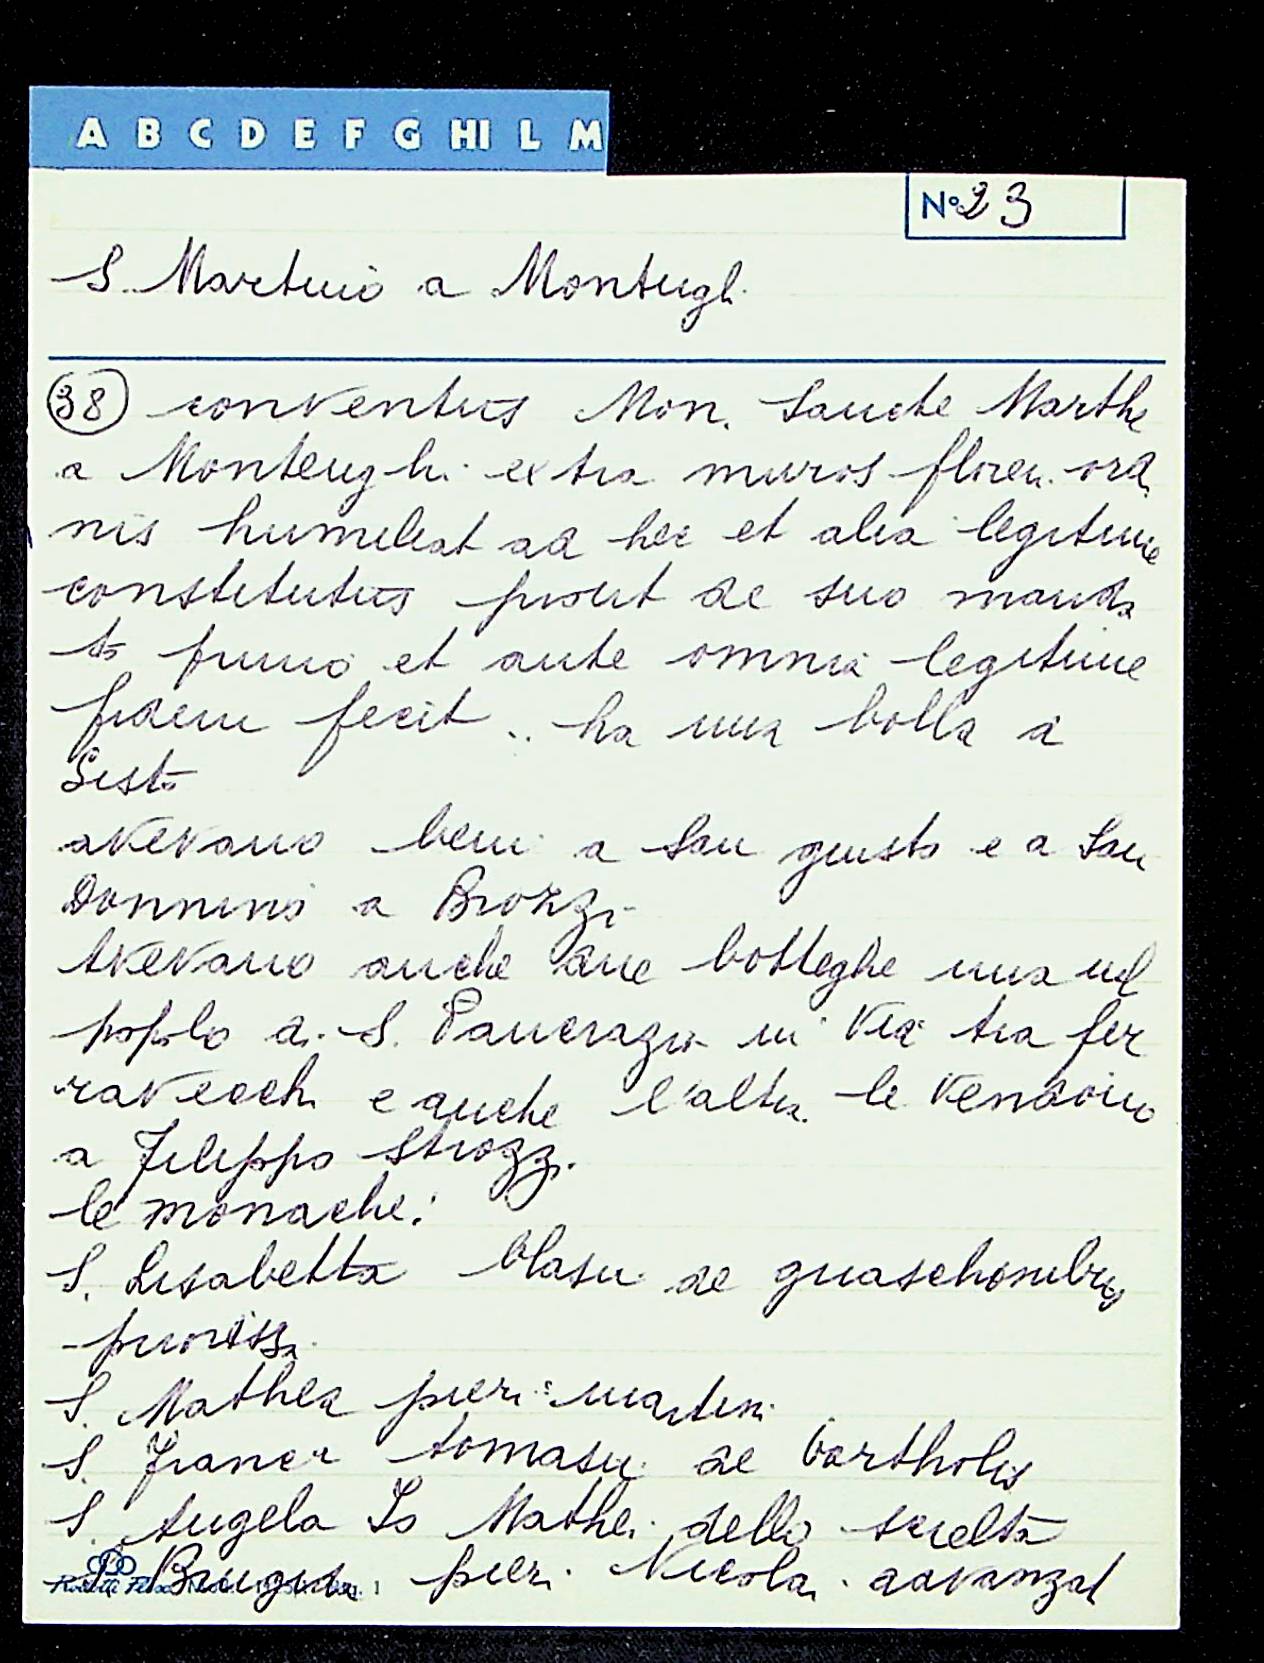 A B C D E F G HI L M
N° 23
S. Martino a Montugh.
38 conventus Mon. Sancte Marthe
a Monteughi extra muros floren. ord.
nis humeliat ad hec et alia legitime
constitutus prout de suo manda
to primo et ante omnia legitime
fidem fecit .. ha una bolla a
Sesto
avevano beni a San giusto e a San
Donnino a Brozzi
Avevano anche due botteghe una nel
popolo di S. Pancrazio in Via tra fer
ravecchi e anche l'altra le vendono
a Filippo Strozzi.
le monache:
S. Lisabetta blasii de guaschonibus
priorissa
S. Mathea pieri martini
S. Franc.a tomasii de bartholis
S. Angela Io Mathei dello scelta
S. Brigida pieri Nicolai davanzat